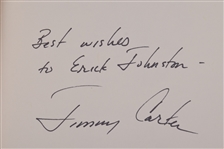 Best wishes
to Erick Johnston -
Jimmy Carter